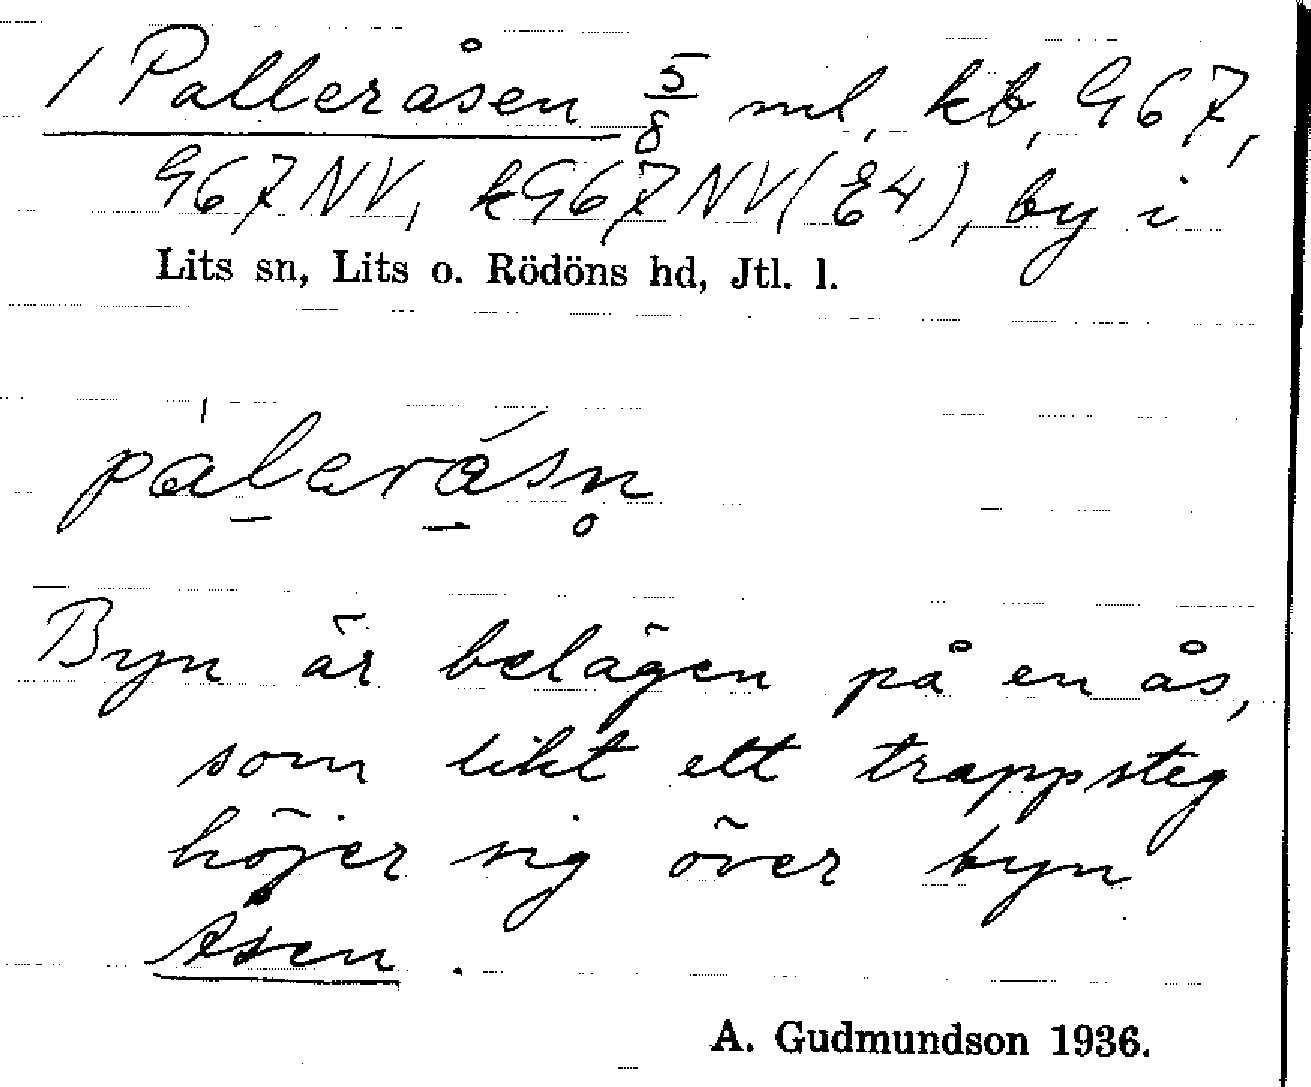 1 Palleråsen 5/8 ml, kb, G67,
G67NV, kG67NV(E4), by i
Lits sn, Lits o. Rödöns hd, Jtl. l.
Byn är belägen på en ås,
som likt ett trappsteg
höjer sig över byn
Åsen.
A. Gudmundson 1936.